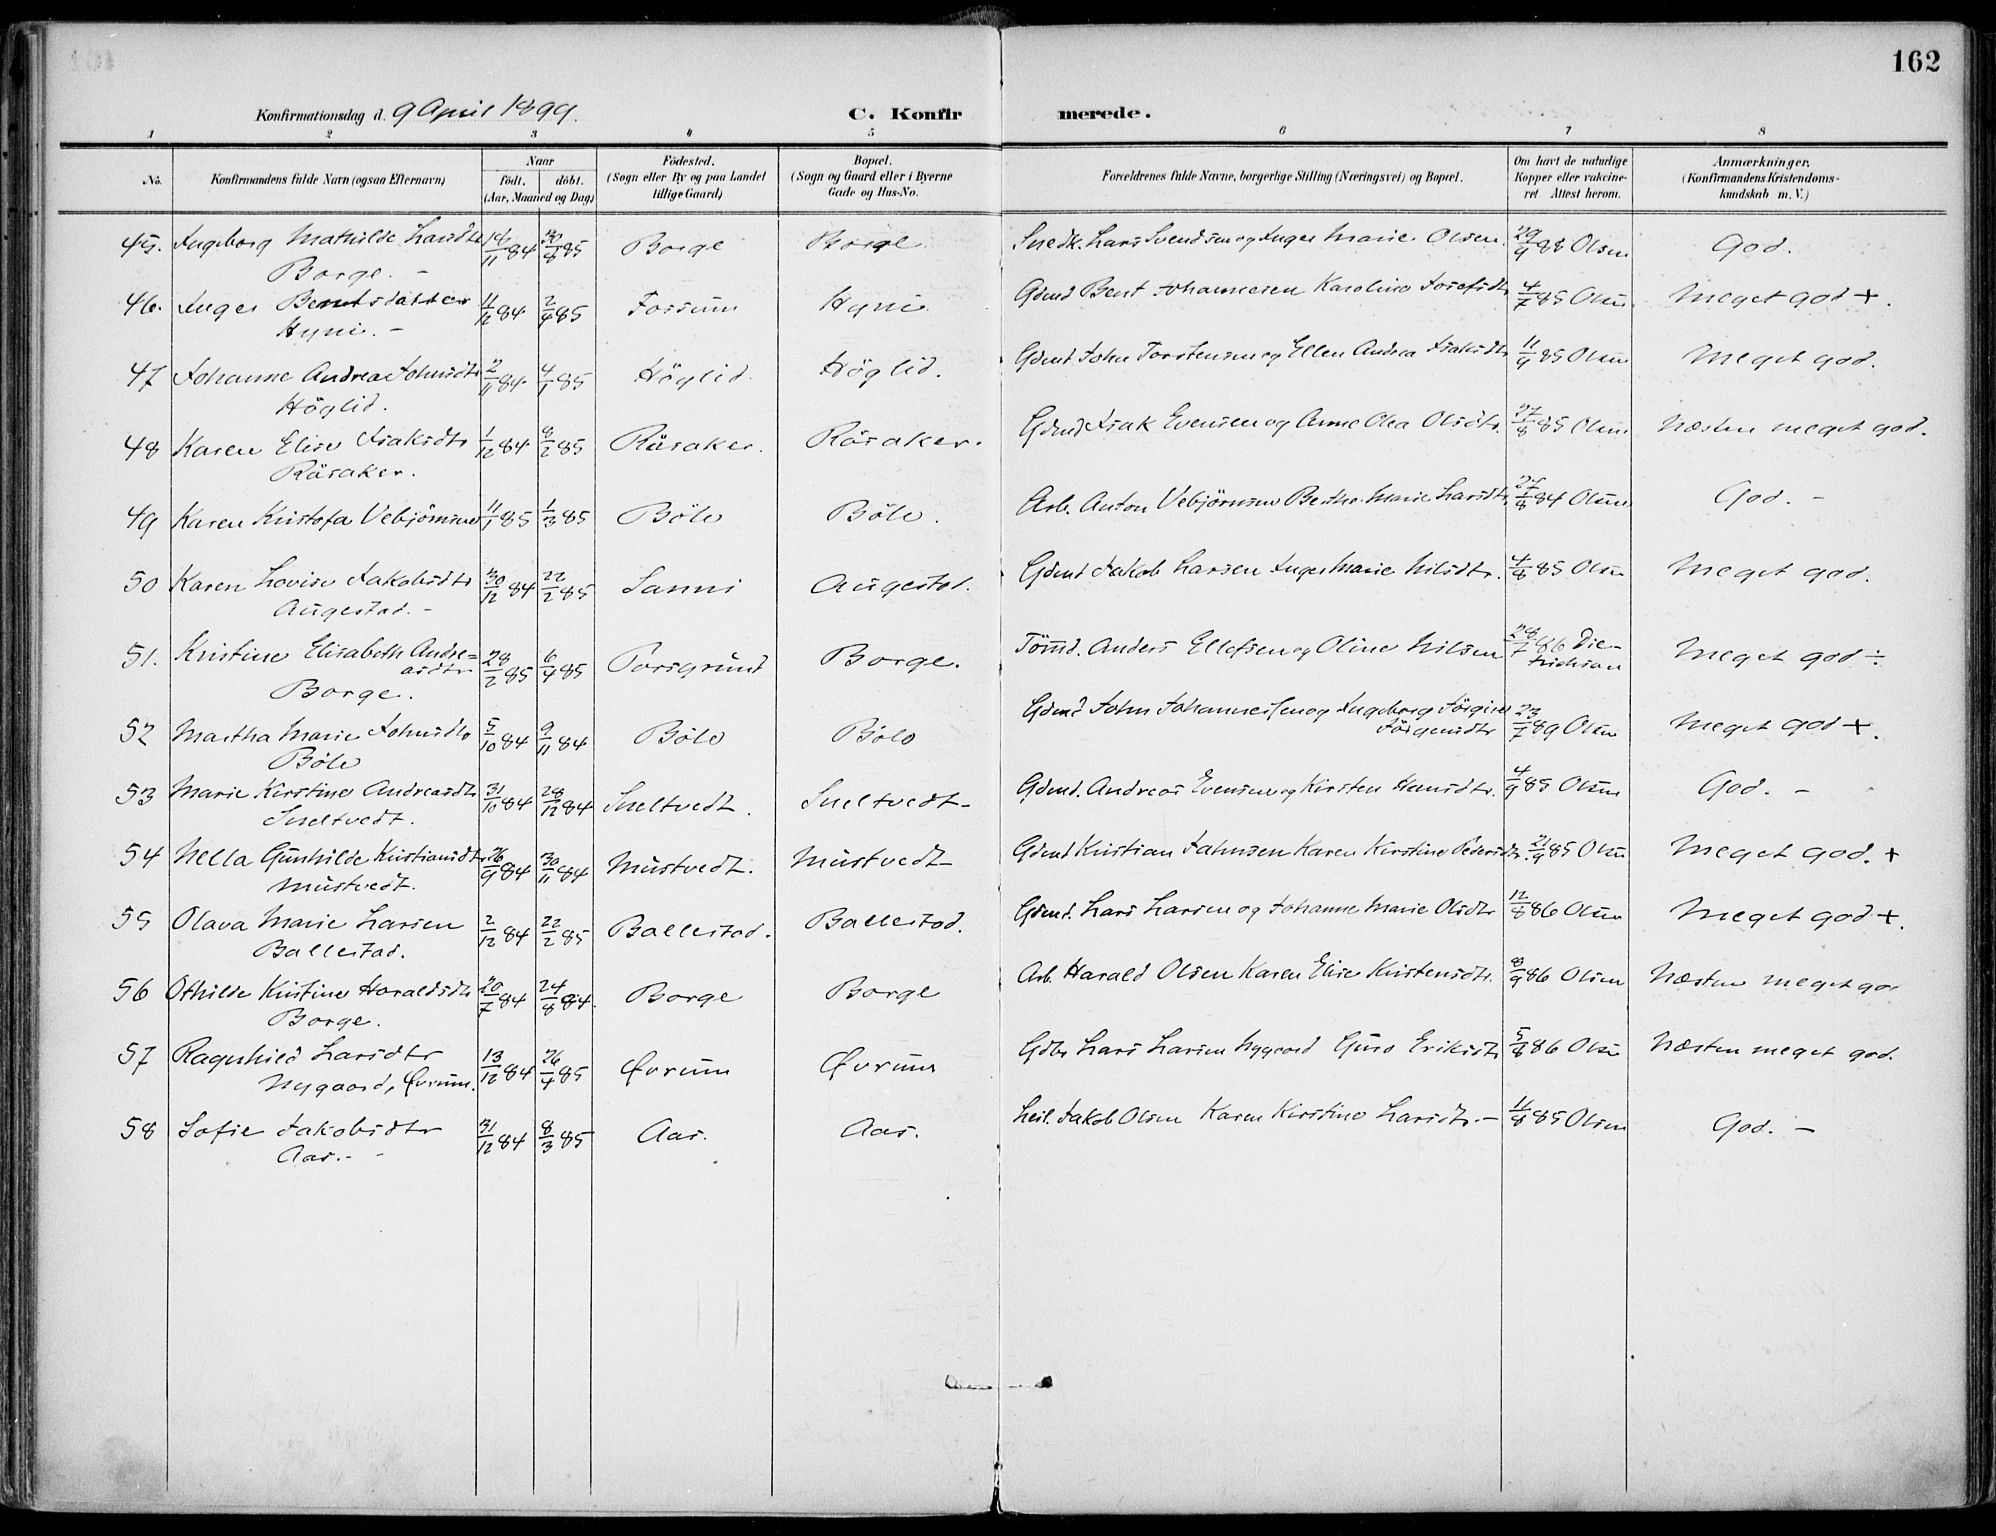 162
Konfirmationsdag d. 9 April 1899. C. Konfirmerede.
1 2 3 4 5 6 7 8
No. Konfirmandens fulde Navn (ogsaa Efternavn) Naar födt. döbt. (Aar, Maaned og Dag) Födested. (Sogn eller By og paa Landet tillige Gaard) Bopæl. (Sogn og Gaard eller i Byerne Gade og Hus-No. Forældrenes fulde Navne, borgerlige Stilling (Næringsvei) og Bopæl. Om havt de naturlige Kopper eller vakcineret Attest herom. Anmærkninger. (Konfirmandens Kristendomskundskab m. V.)
45. Ingeborg Mathilde Larsdtr 16/11 84 30/8 85 Borge Borge Snedk. Lars Svendsen og Inger Marie Olsen. 29/9 88 Olsen God.
Borge. -
46. Inger Bentsdatter 11/12 84 2/4 85 Fossum Hyni Gdmd Bent Johannesen Karoline Josefsdtr 4/7 85 Olsen Meget god +.
Hyni. -
47 Johanne Andrea Johnsdtr 2/11 84 4/1 85 Höglid. Höglid. Gdmd John Torstensen og Ellen Andrea Isaksdtr 11/9 85 Olsen Meget god.
Höglid.
48 Karen Elise Isaksdtr 1/12 84 8/2 85 Räsaker. Räsaker. Gdmd Isak Evensen og Anne Olea Olsdtr. 27/8 85 Olsen Næsten meget god.
Räsaker.
49 Karen Kristofa Vebjörnsen 11/1 85 1/3 85 Böle Böle. Arb. Anton Vebjörnsen Berthe Marie Larsdtr. 27/8 84 Olsen God. -
50 Karen Lovise Jakobsdtr 30/12 84 22/2 85 Sanni Augestad. Gdmd Jakob Larsen Inger Marie Nilsdtr. 4/8 85 Olsen Meget god.
Augestad. -
51. Kristine Elisabeth Andre=
asdtr 28/2 85 6/4 85 Porsgrund Borge. Tömd. Anders Ellefsen og Oline Nilsen 28/7 86 Die-
trichson Meget god ÷
Borge.
52 Martha Marie Johnsdtr 5/10 84 9/11 84 Böle Böle Gdmd John Johannessen og Ingeborg
Jörgensdtr 23/7 89 Olsen Meget god +.
Böle
53 Marie Kirstine Andreasdtr 31/10 84 28/12 84 Sneltvedt. Sneltvedt- Gdmd. Andreas Evensen og Kirsten Hansdtr. 4/9 85 Olsen God. -
Sneltvedt.
54 Nella Gunhilde Kristiansdtr 26/9 84 30/11 84 Mustvedt. Mustvedt Gdmd Kristian Jahnsen Karen Kirstine Pedersdtr. 21/9 85 Olsen Meget god. +
Mustvedt.
55 Olava Marie Larsen 2/12 84 22/2 85 Ballestad. Ballestad. Gdmd. Lars Larsen og Johanne Marie Olsdtr 12/8 86 Olsen Meget god +.
Ballestad.
56 Othilde Kristine Haraldsdtr 20/7 84 24/8 84. Borge Borge Arb. Harald Olsen Karen Elise Kristensdtr. 8/9 86 Olsen Næsten meget go
Borge.
57 Ragnhild Larsdtr 13/12 84 26/4 85 Øvrum Øvrum Gdbr Lars Larsen Nygaard Guro Eriksdtr 5/8 86 Olsen Næsten meget god.
Nygaard, Øvrum.
58 Sofie Jakobsdtr 31/12 84 8/3 85 Aas. Aas. Leil. Jakob Olsen Karen Kirstine Larsdtr. - 11/8 85 Olsen God. -
Aas. -